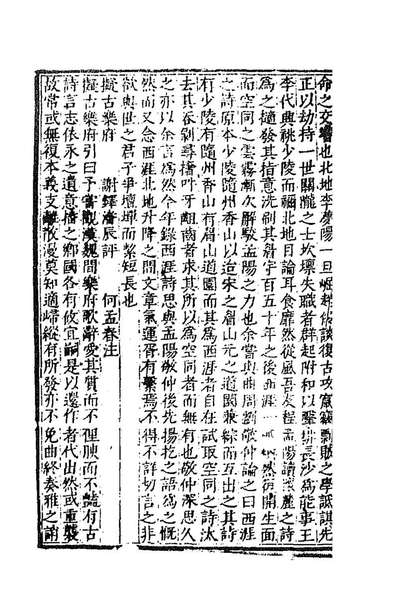 命之交響也北地李夢陽一旦崛起侈談復古攻竄竊剽賊之學詆諆先
正以劫持一世關隴之士坎壈失職者群起附和以擊排長沙為能事王
李代興祧少陵而禰北地目論耳食靡然從風吾友程孟陽讀懷麓之詩
為之擿發其指意洗刷其眉宇百五十年之後西涯一派煥然復開生面
而空同之雲霧漸次解駮孟陽之力也余嘗與曲周劉敬仲論之曰西涯
之詩原本少陵隨州香山以迨宋之眉山元之道園兼綜而互出之其詩
有少陵有隨州香山有眉山道園而其為西涯者自在試取空同之詩汰
去其吞剝撏撦吽牙齟齬者求其所以為空同者而無有也敬仲深思久
之亦以余言為然今年錄西涯詩思與孟陽敬仲後先揚扢之語為之慨
然而又念西涯北地升降之間文章氣運胥有繫焉不得不詳切言之非
欲與世之君子爭壇墠而絜短長也
擬古樂府　謝鐸潘辰評　何孟春注
擬古樂府引曰予嘗觀漢魏間樂府歌辭愛其質而不俚腴而不豔有古
詩言志依永之遺意播之鄉國各有攸宜嗣是以還作者代出然或重襲
故常或無復本義支離散漫莫知適歸縱有所發亦不免曲終奏雅之誚